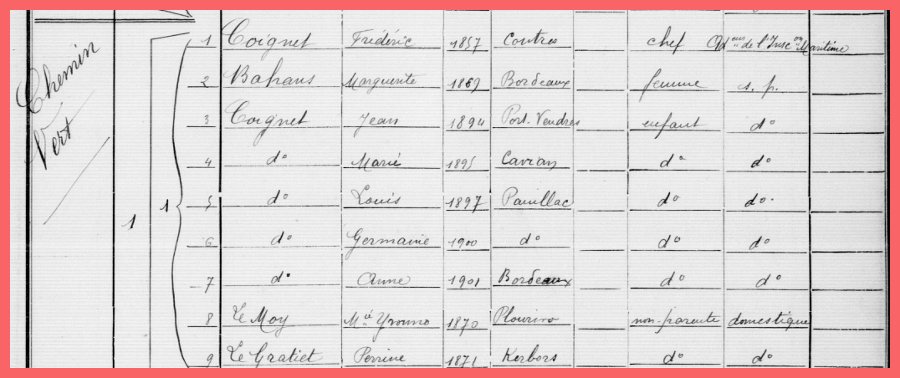 Chemin Vert
1 1
1 Coignet Frédéric 1857 Contres chef de l'Insc on Maritime
2 Bahans Marguerite 1869 Bordeaux femme s. p.
3 Coignet Jean 1894 Port-Vendres enfant do
4 do Marie 1895 do do
5 do Louis 1897 Pauillac do do
6 do Germaine 1900 do do do
7 do Anne 1901 Bordeaux do do
8 Le Moy Mie 1870 non-parente domestique
9 Le Gratiet Perrine 1871 Kerbors do do